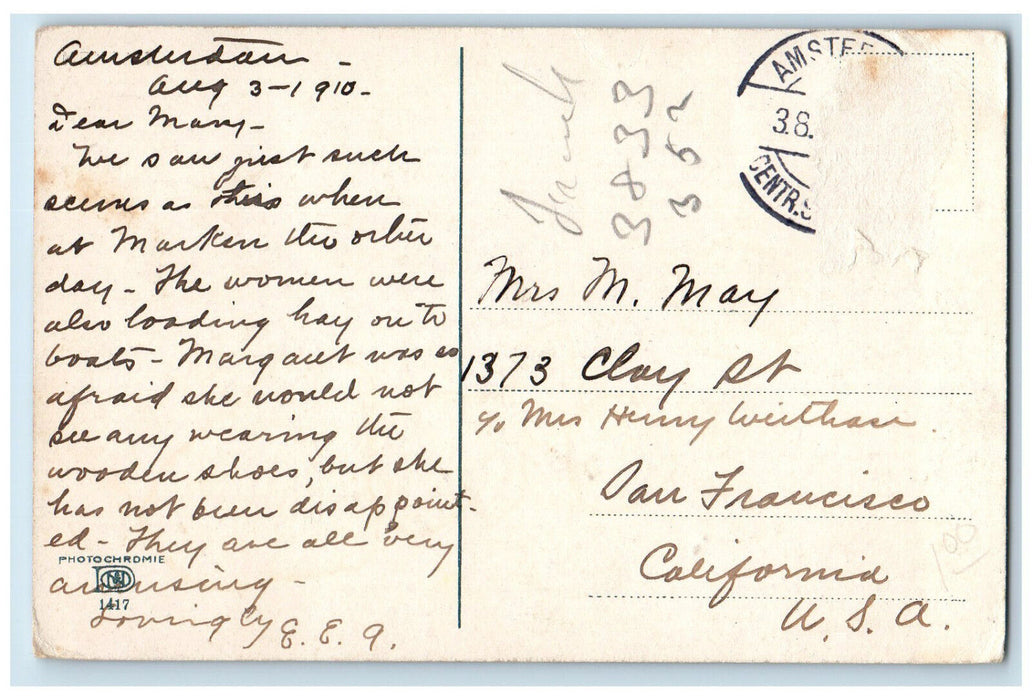 Amsterdam -
Aug 3-1910-
Dear Mary-
We saw just such
scenes as this when
at Marken the other
day - The women were
also loading hay on to
boats - Margaret was so
afraid she would not
see any wearing the
wooden shoes, but she
has not been disappoint-
ed - They are all very
amusing -
Lovingly
E. E. A.
PHOTOCHROMIE
1417
3833
352
AMSTE
3.8.
CENTR.S
Mrs M. May
1373 Clay St
c/o Mrs Henry
San Francisco
California
U. S. A.
100